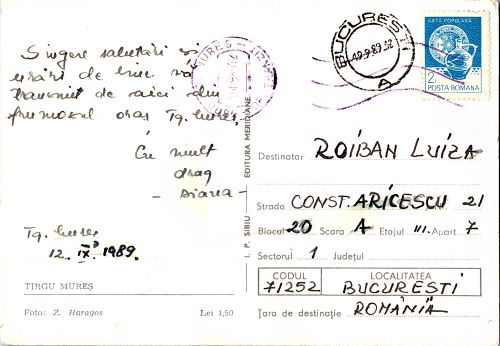 Sincere salutări și
urări de bine vă
transmit de aici din
frumosul oraș Tg. Mureș.
Cu mult
drag
- Diana -
Tg. Mureș
12. IX. 1989.
TIRGU MUREȘ
Foto: Z. Haragos Lei 1,50
I. P. SIBIU EDITURA MERIDIANE
MUREȘ
BUCUREȘTI
A
ARTA POPULARĂ
2
POSTA ROMANA
Destinatar ROIIBAN LUIZA
Strada CONST. ARICESCU 21
Blocul 20 Scara A Etajul III. Apart 7
Sectorul 1 Județul
CODUL LOCALITATEA
71252 BUCURESTI
Țara de destinație ROMÂNIA